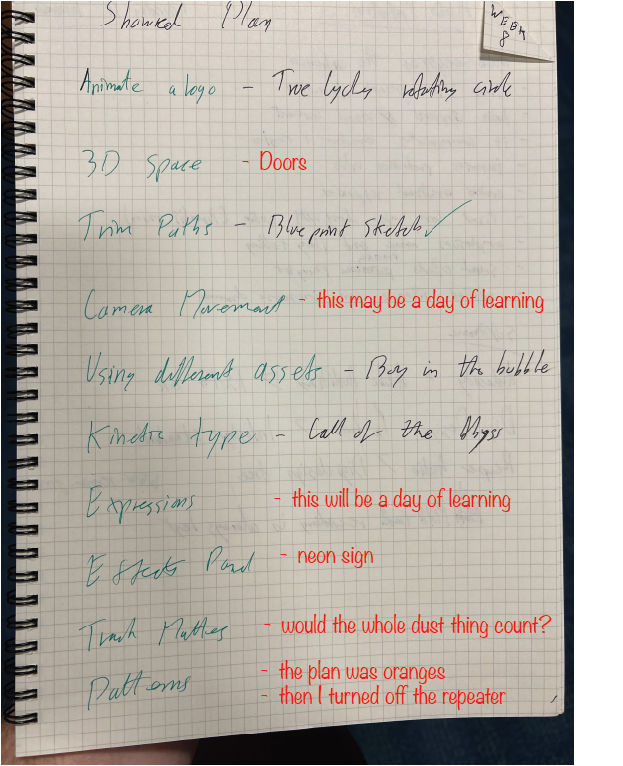 Showreel Plan
WEEK
8
Animate a logo - True lycles rotating circle
3D Space - Doors
Trim Paths - Blueprint Sketch ✓
Camera Movement - this may be a day of learning
Using different assets - Boy in the bubble
Kinetic type - Call of the Abyss
Expressions - this will be a day of learning
Effects Panel - neon sign
Track Mattes - would the whole dust thing count?
Patterns - the plan was oranges
- then I turned off the repeater